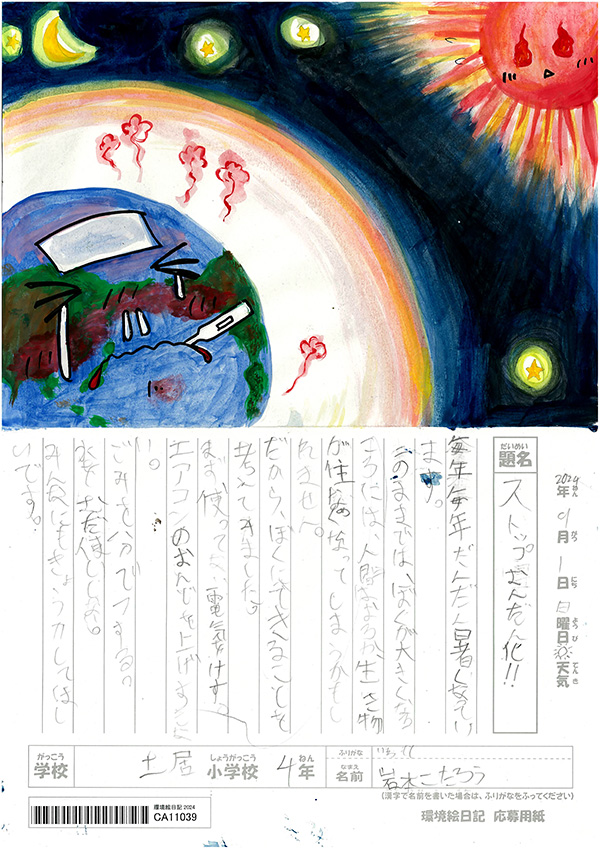 2024年 9月 1日 日曜日 天気
ねん がつ にち ようび てんき
だいめい
題名
ストップおんだん化!!
毎年毎年だんだん暑くなってい
ます。
このままでは、ぼくが大きくなる
ころには、人間はおろか、生き物
が住めなくなってしまうかもし
れません。
だから、ぼくにできることを
考えてみました。
まず使ってない電気をけす。
エアコンのおんどを上げすぎな
い。
ごみを八分でつする。
水をむだ使いしない。
みんなにもきょう力してほし
いです。
がっこう
学校
土居
しょうがっこう
小学校
4年
ねん
ふりがな
なまえ
名前
岩本こたろう
(漢字で名前を書いた場合は、ふりがなをふってください)
環境絵日記 2024
CA11039
環境絵日記 応募用紙